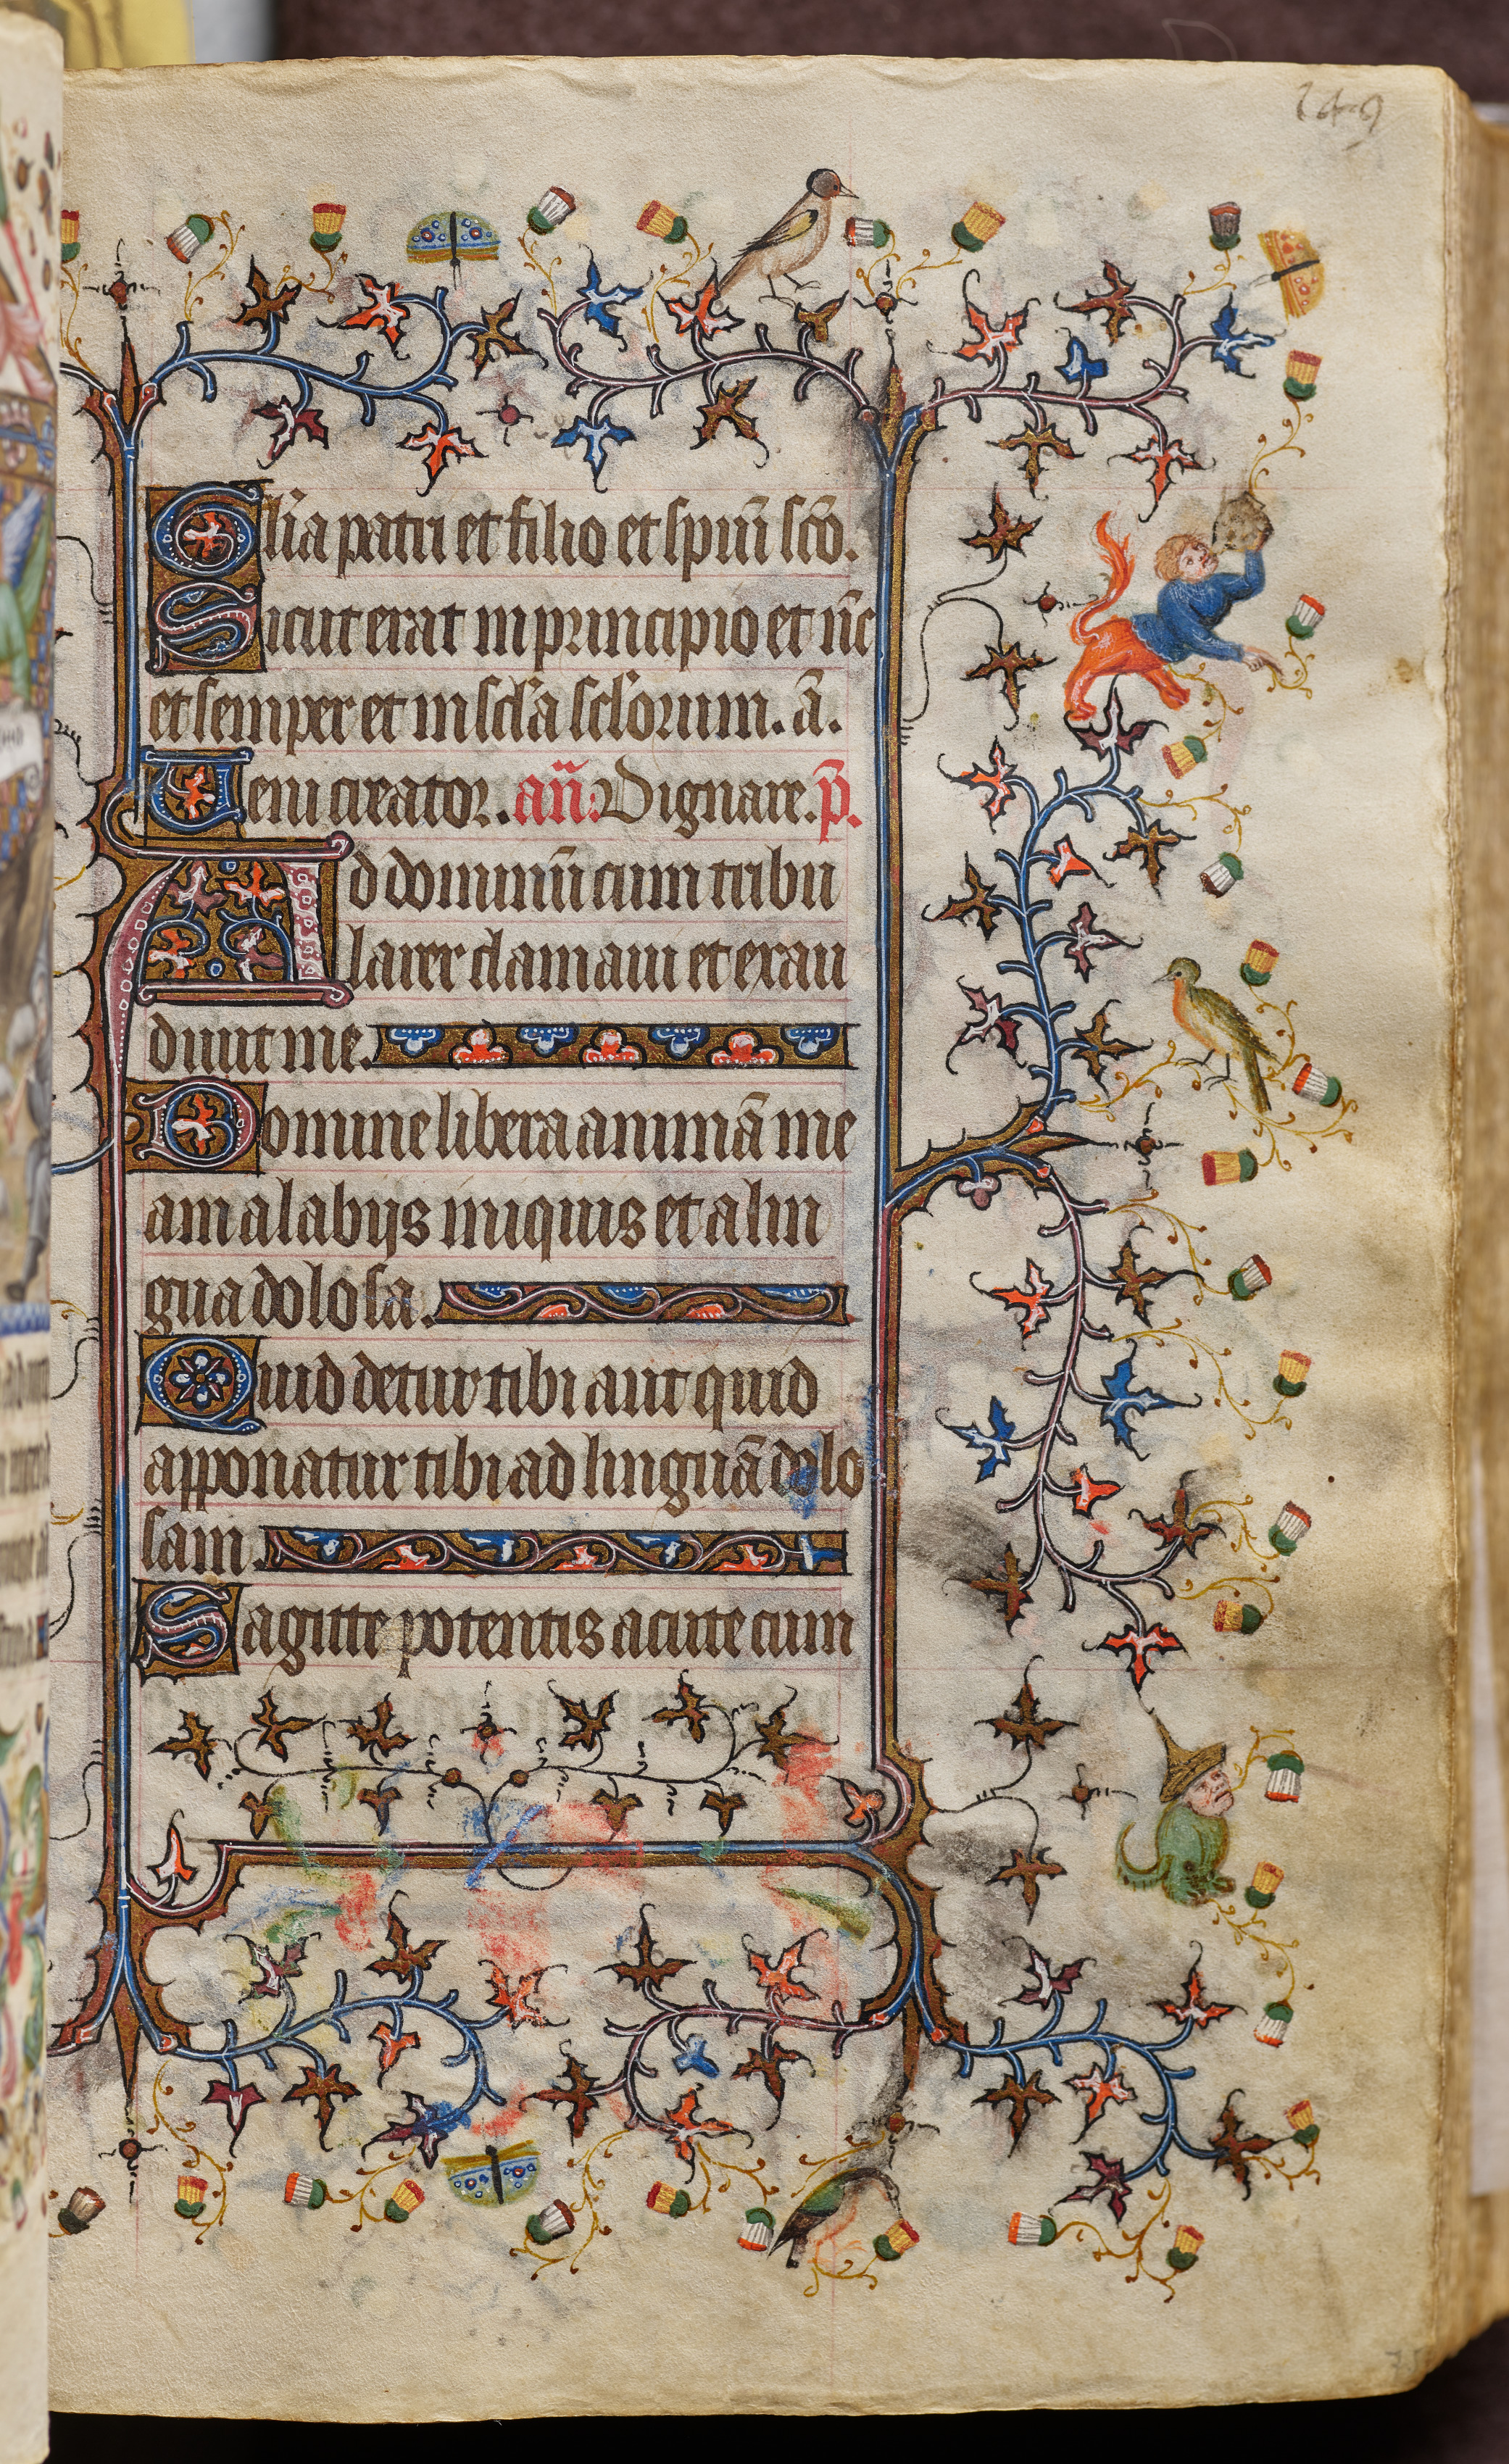 149
Gl'ia patri et filio et spiũi sc̃o.
Sicut erat in principio et nũc
et semper et in scl'a scl'orum. am̃.
Veni creator. añ: Dignare. p̃.
Ad dominũ cum tribu
larer clamaui et exau
diuit me.
Domine libera animã me
am a labijs iniquis et a lin
gua dolosa.
Quid detur tibi aut quid
apponatur tibi ad linguã dolo
sam.
Sagitte potentis acute cum